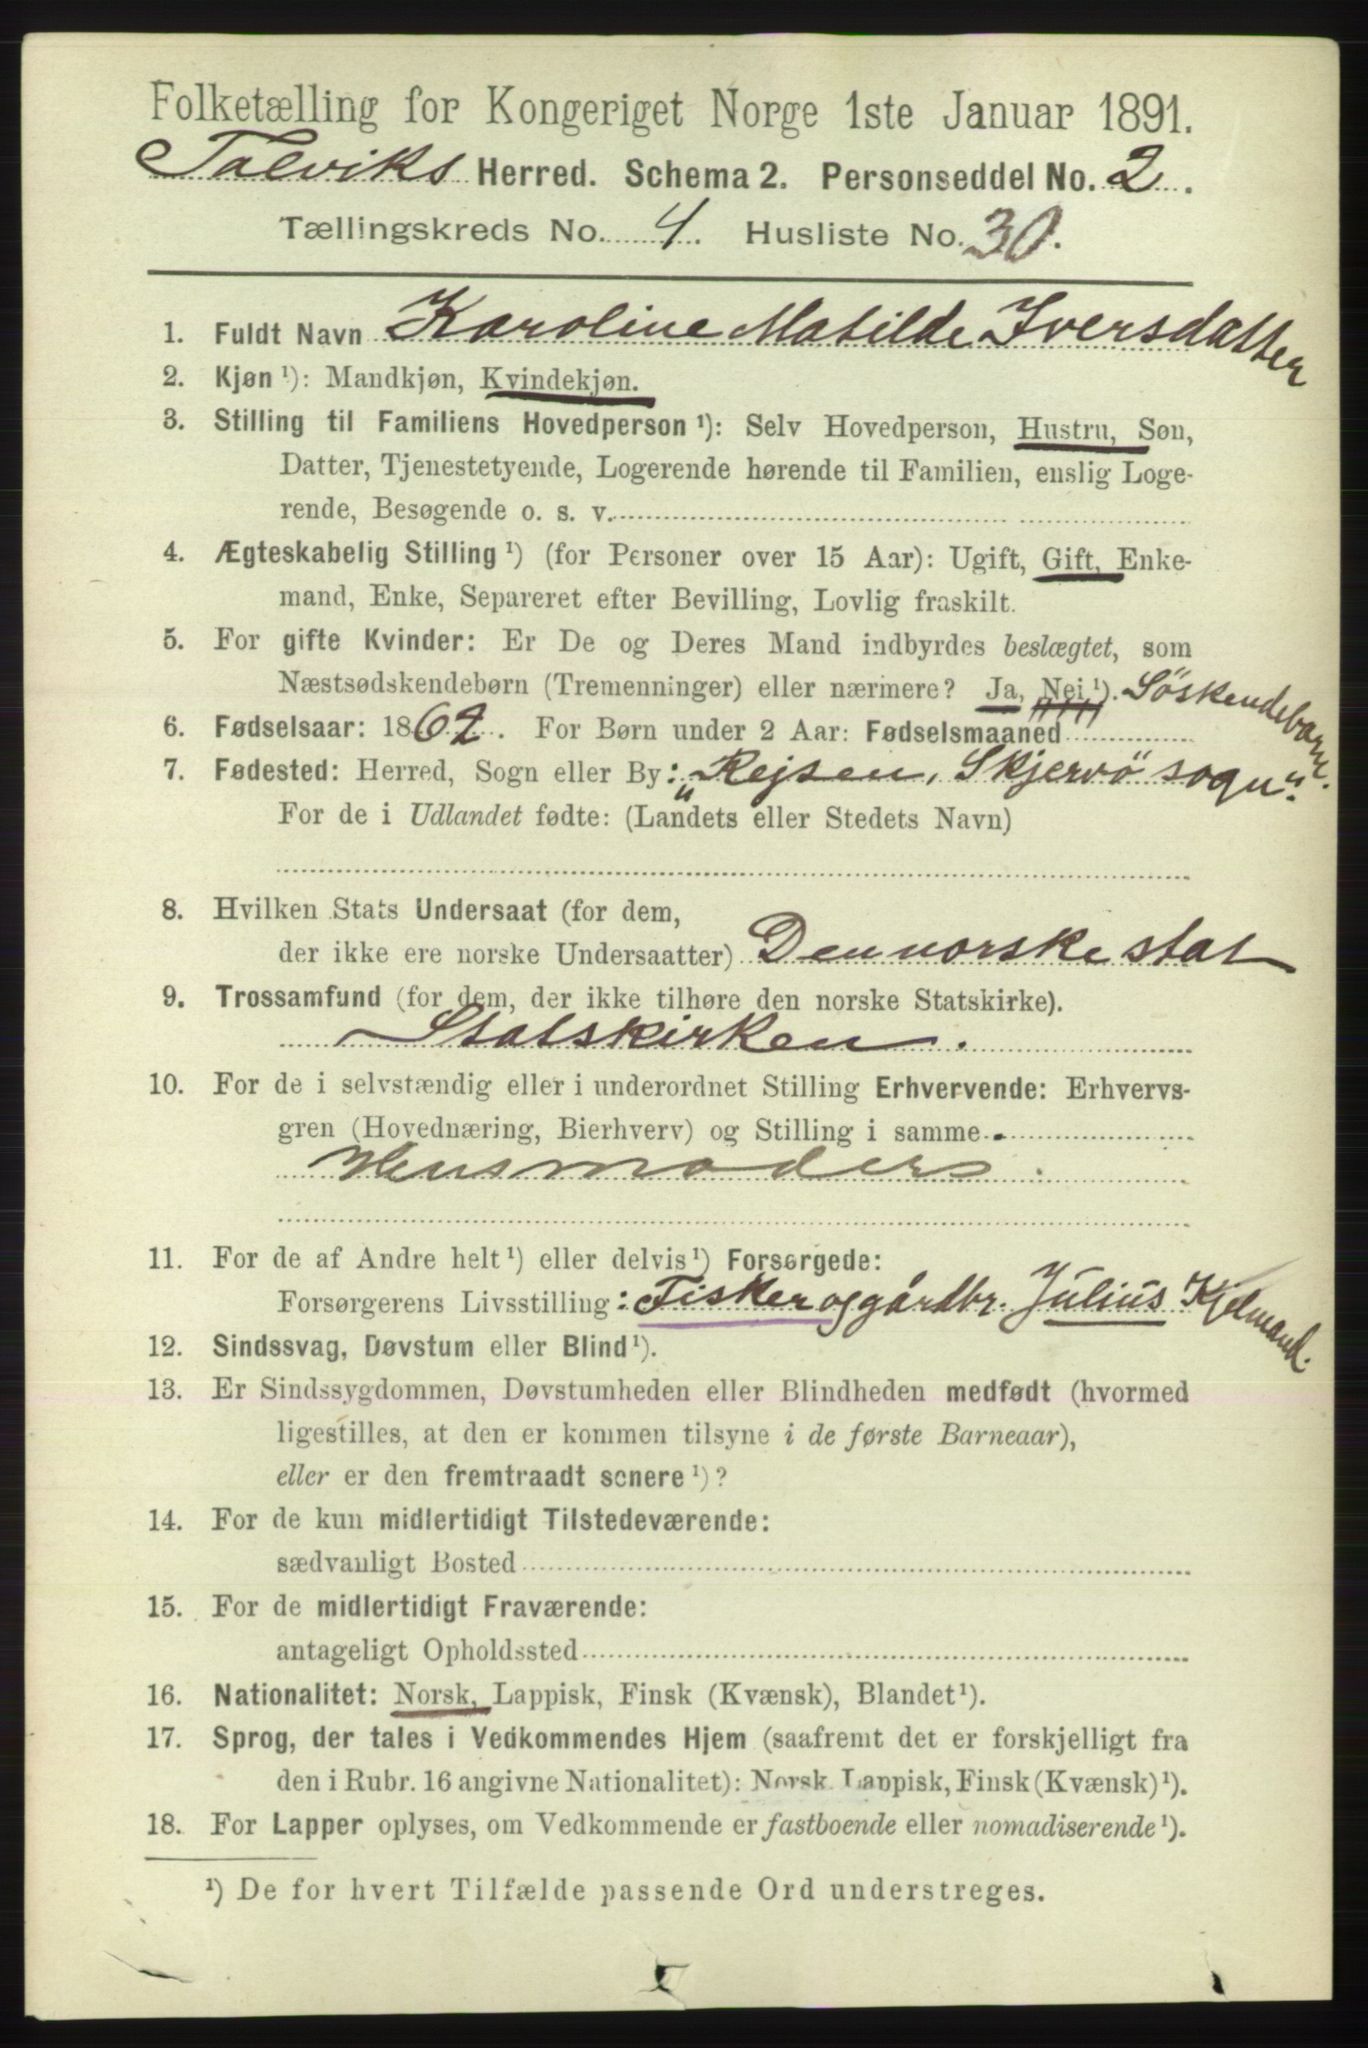 Folketælling for Kongeriget Norge 1ste Januar 1891.
Talviks Herred. Schema 2. Personseddel No. 2.
Tællingskreds No. 4. Husliste No. 30.
1. Fuldt Navn Karoline Matilde Iversdatter
2. Kjøn ¹): Mandkjøn, Kvindekjøn.
3. Stilling til Familiens Hovedperson ¹): Selv Hovedperson, Hustru, Søn,
Datter, Tjenestetyende, Logerende hørende til Familien, enslig Loge-
rende, Besøgende o. s. v.
4. Ægteskabelig Stilling ¹) (for Personer over 15 Aar): Ugift, Gift, Enke-
mand, Enke, Separeret efter Bevilling, Lovlig fraskilt.
5. For gifte Kvinder: Er De og Deres Mand indbyrdes beslægtet, som
Næstsødskendebørn (Tremenninger) eller nærmere? Ja, Nei ¹). Söskendebarn.
6. Fødselsaar: 1862. For Børn under 2 Aar: Fødselsmaaned
7. Fødested: Herred, Sogn eller By: „Rejsen, Skjervö sogn".
For de i Udlandet fødte: (Landets eller Stedets Navn)
8. Hvilken Stats Undersaat (for dem,
der ikke ere norske Undersaatter) Den norske stat
9. Trossamfund (for dem, der ikke tilhøre den norske Statskirke).
Statskirken.
10. For de i selvstændig eller i underordnet Stilling Erhvervende: Erhvervs-
gren (Hovednæring, Bierhverv) og Stilling i samme
Husmoders.
11. For de af Andre helt ¹) eller delvis ¹) Forsørgede:
Forsørgerens Livsstilling: Fisker og gårdbr. Julius Kjelmand.
12. Sindssvag, Døvstum eller Blind ¹).
13. Er Sindssygdommen, Døvstumheden eller Blindheden medfødt (hvormed
ligestilles, at den er kommen tilsyne i de første Barneaar),
eller er den fremtraadt senere ¹)?
14. For de kun midlertidigt Tilstedeværende:
sædvanligt Bosted
15. For de midlertidigt Fraværende:
antageligt Opholdssted
16. Nationalitet: Norsk, Lappisk, Finsk (Kvænsk), Blandet ¹).
17. Sprog, der tales i Vedkommendes Hjem (saafremt det er forskjelligt fra
den i Rubr. 16 angivne Nationalitet): Norsk, Lappisk, Finsk (Kvænsk) ¹).
18. For Lapper oplyses, om Vedkommende er fastboende eller nomadiserende ¹).
¹) De for hvert Tilfælde passende Ord understreges.